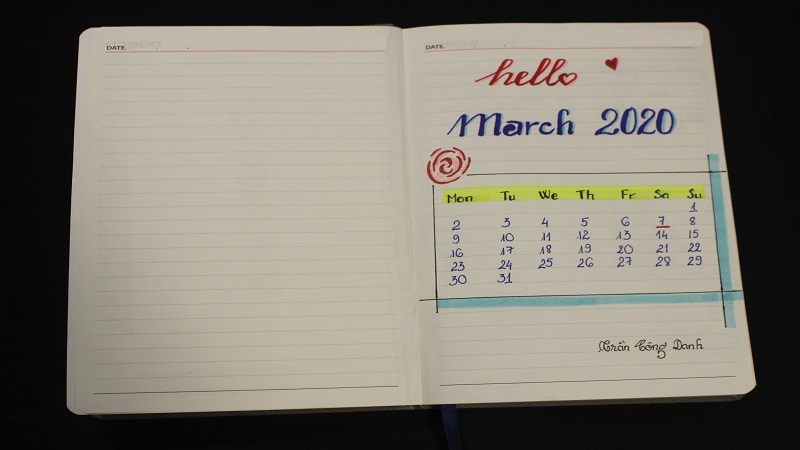 DATE
DATE
hello
March 2020
Mon Tu We Th Fr Sa Su
1
2 3 4 5 6 7 8
9 10 11 12 13 14 15
16 17 18 19 20 21 22
23 24 25 26 27 28 29
30 31
Trần Công Danh